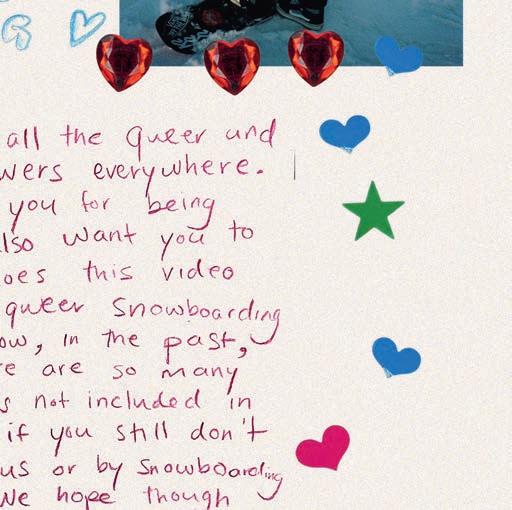 all the queer und
wers everywhere.
you for being
lso want you to
oes this video
queer snowboarding
ow, in the past,
e are so many
s not included in
if you still don't
us or by snowboarding
We hope though